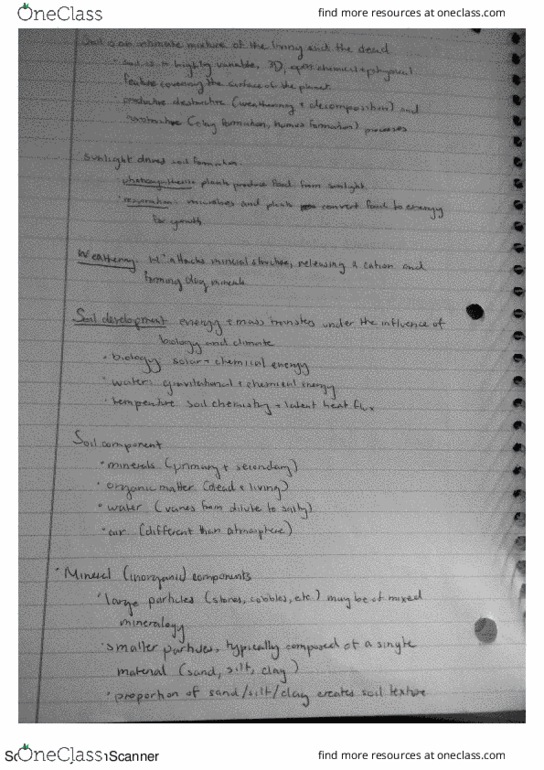 OneClass
find more resources at oneclass.com
Soil is an intimate mixture of the living and the dead
· soil is a highly variable, 3D, chemical + physical
feature covering the surface of the planet.
destructive (weathering + decomposition) and
(clay formation, humus formation) processes
Sunlight drives soil formation.
· photosynthesis: plants produce food from sunlight.
· respiration: microbes and plants convert food to energy
for growth
Weathering: H+ attacks mineral structure, releasing a cation and
forming clay minerals
Soil development: energy + mass transfers under the influence of
biology and climate
· biology: solar + chemical energy
· water: gravitational + chemical energy
· temperature: soil chemistry + latent heat flux
Soil component
· minerals (primary + secondary)
· organic matter (dead + living)
· water (varies from dilute to salty)
· air (different than atmosphere)
· Mineral (inorganic) components
· large particles (stones, cobbles, etc.) may be of mixed
mineralogy
· smaller particles, typically composed of a single
material (sand, silt, clay)
· proportion of sand/silt/clay creates soil texture
OneClass
Scanner
find more resources at oneclass.com